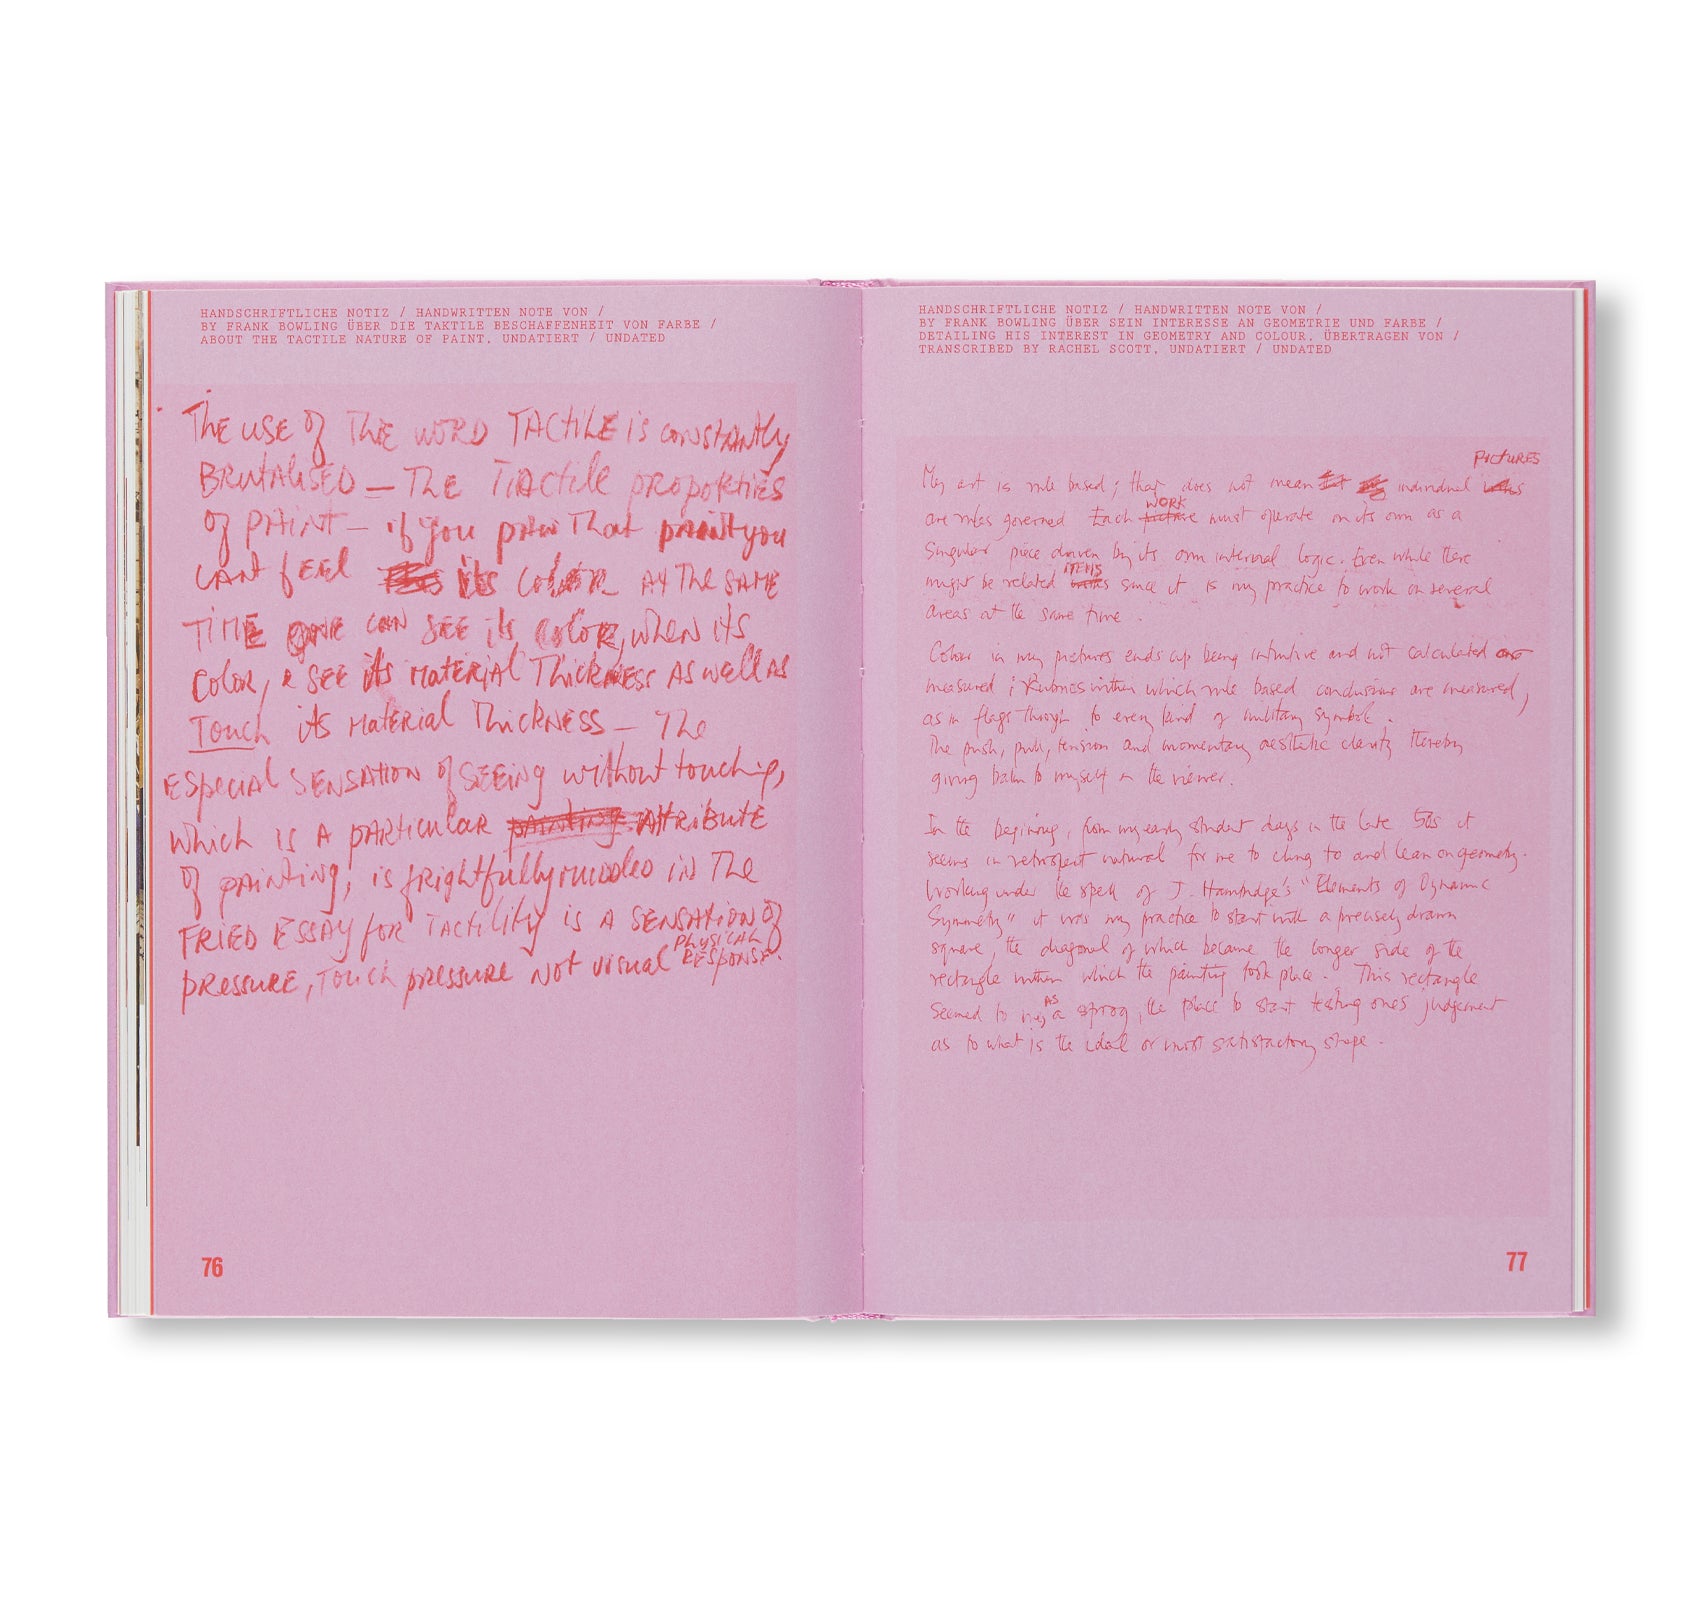 HANDSCHRIFTLICHE NOTIZ / HANDWRITTEN NOTE VON /
BY FRANK BOWLING ÜBER DIE TAKTILE BESCHAFFENHEIT VON FARBE /
ABOUT THE TACTILE NATURE OF PAINT, UNDATIERT / UNDATED
The use of The word TACTILE is constantly
BRUTALISED — The TACTILE properties
of PAINT — if you paw that paint you
can't feel its color At The SAME
TIME ONE can see its color, when its
color, & see its material Thickness as well as
Touch its material Thickness — The
especial sensation of seeing without touching,
which is a particular painting attribute
of painting, is frightfully muddled in The
FRIED ESSAY for Tactility is a sensation of
PHYSICAL
pressure, touch pressure not visual RESPONSE.
76
HANDSCHRIFTLICHE NOTIZ / HANDWRITTEN NOTE VON /
BY FRANK BOWLING ÜBER SEIN INTERESSE AN GEOMETRIE UND FARBE /
DETAILING HIS INTEREST IN GEOMETRY AND COLOUR, ÜBERTRAGEN VON /
TRANSCRIBED BY RACHEL SCOTT, UNDATIERT / UNDATED
PICTURES
My art is rule based; that does not mean individual
WORK
are rules governed Each picture must operate on its own as a
Singular piece driven by its own internal logic. Even while there
ITEMS
might be related since it is my practice to work on several
areas at the same time.
Colour in my pictures ends up being intuitive and not calculated or
measured; Rubrics within which rule based conclusions are measured,
as in flags through to every kind of military symbol.
The push, pull, tension and momentary aesthetic clarity thereby
giving balm to myself or the viewer.
In the begining, from my early student days in the late 50s it
seems in retrospect natural for me to cling to and lean on geometry.
Working under the spell of J. Hambidge's "Elements of Dynamic
Symmetry" it was my practice to start with a precisely drawn
square, the diagonal of which became the longer side of the
rectangle within which the painting took place. This rectangle
AS
seemed to me, a sprog, the place to start testing ones judgement
as to what is the ideal or most satisfactory shape.
77